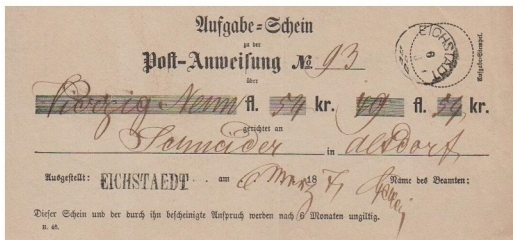 Aufgabe=Schein
zu der
Post-Anweisung № 93
über
Vierzig Neun fl. 54 kr. 49 fl. 54 kr.
gerichtet an
Schneider in Altdorf
Ausgestellt: EICHSTAEDT am 6 März 187 Name des Beamten:
Dieser Schein und der durch ihn bescheinigte Anspruch werden nach 6 Monaten ungiltig.
EICHSTAEDT
6
Aufgabe-Stempel.